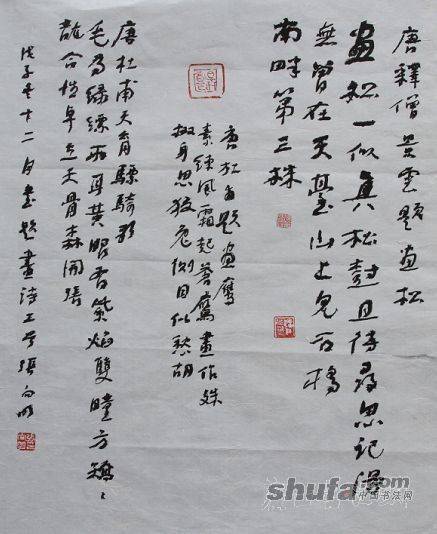 唐釋僧景雲題画松
画松一似真松樹且待尋思記得
無曾在天臺山上見石橋
南畔第三株
唐杜甫題画鷹
素練風霜起蒼鷹畫作殊
㧐身思狡兔側目似愁胡
唐杜甫天育驃騎歌
毛為緑縹兩耳黄眼有紫焰雙瞳方矯々
龍合性卓立天骨森開張
戊子十二月書題畫詩三首張向明
shufa.com
中国书法网